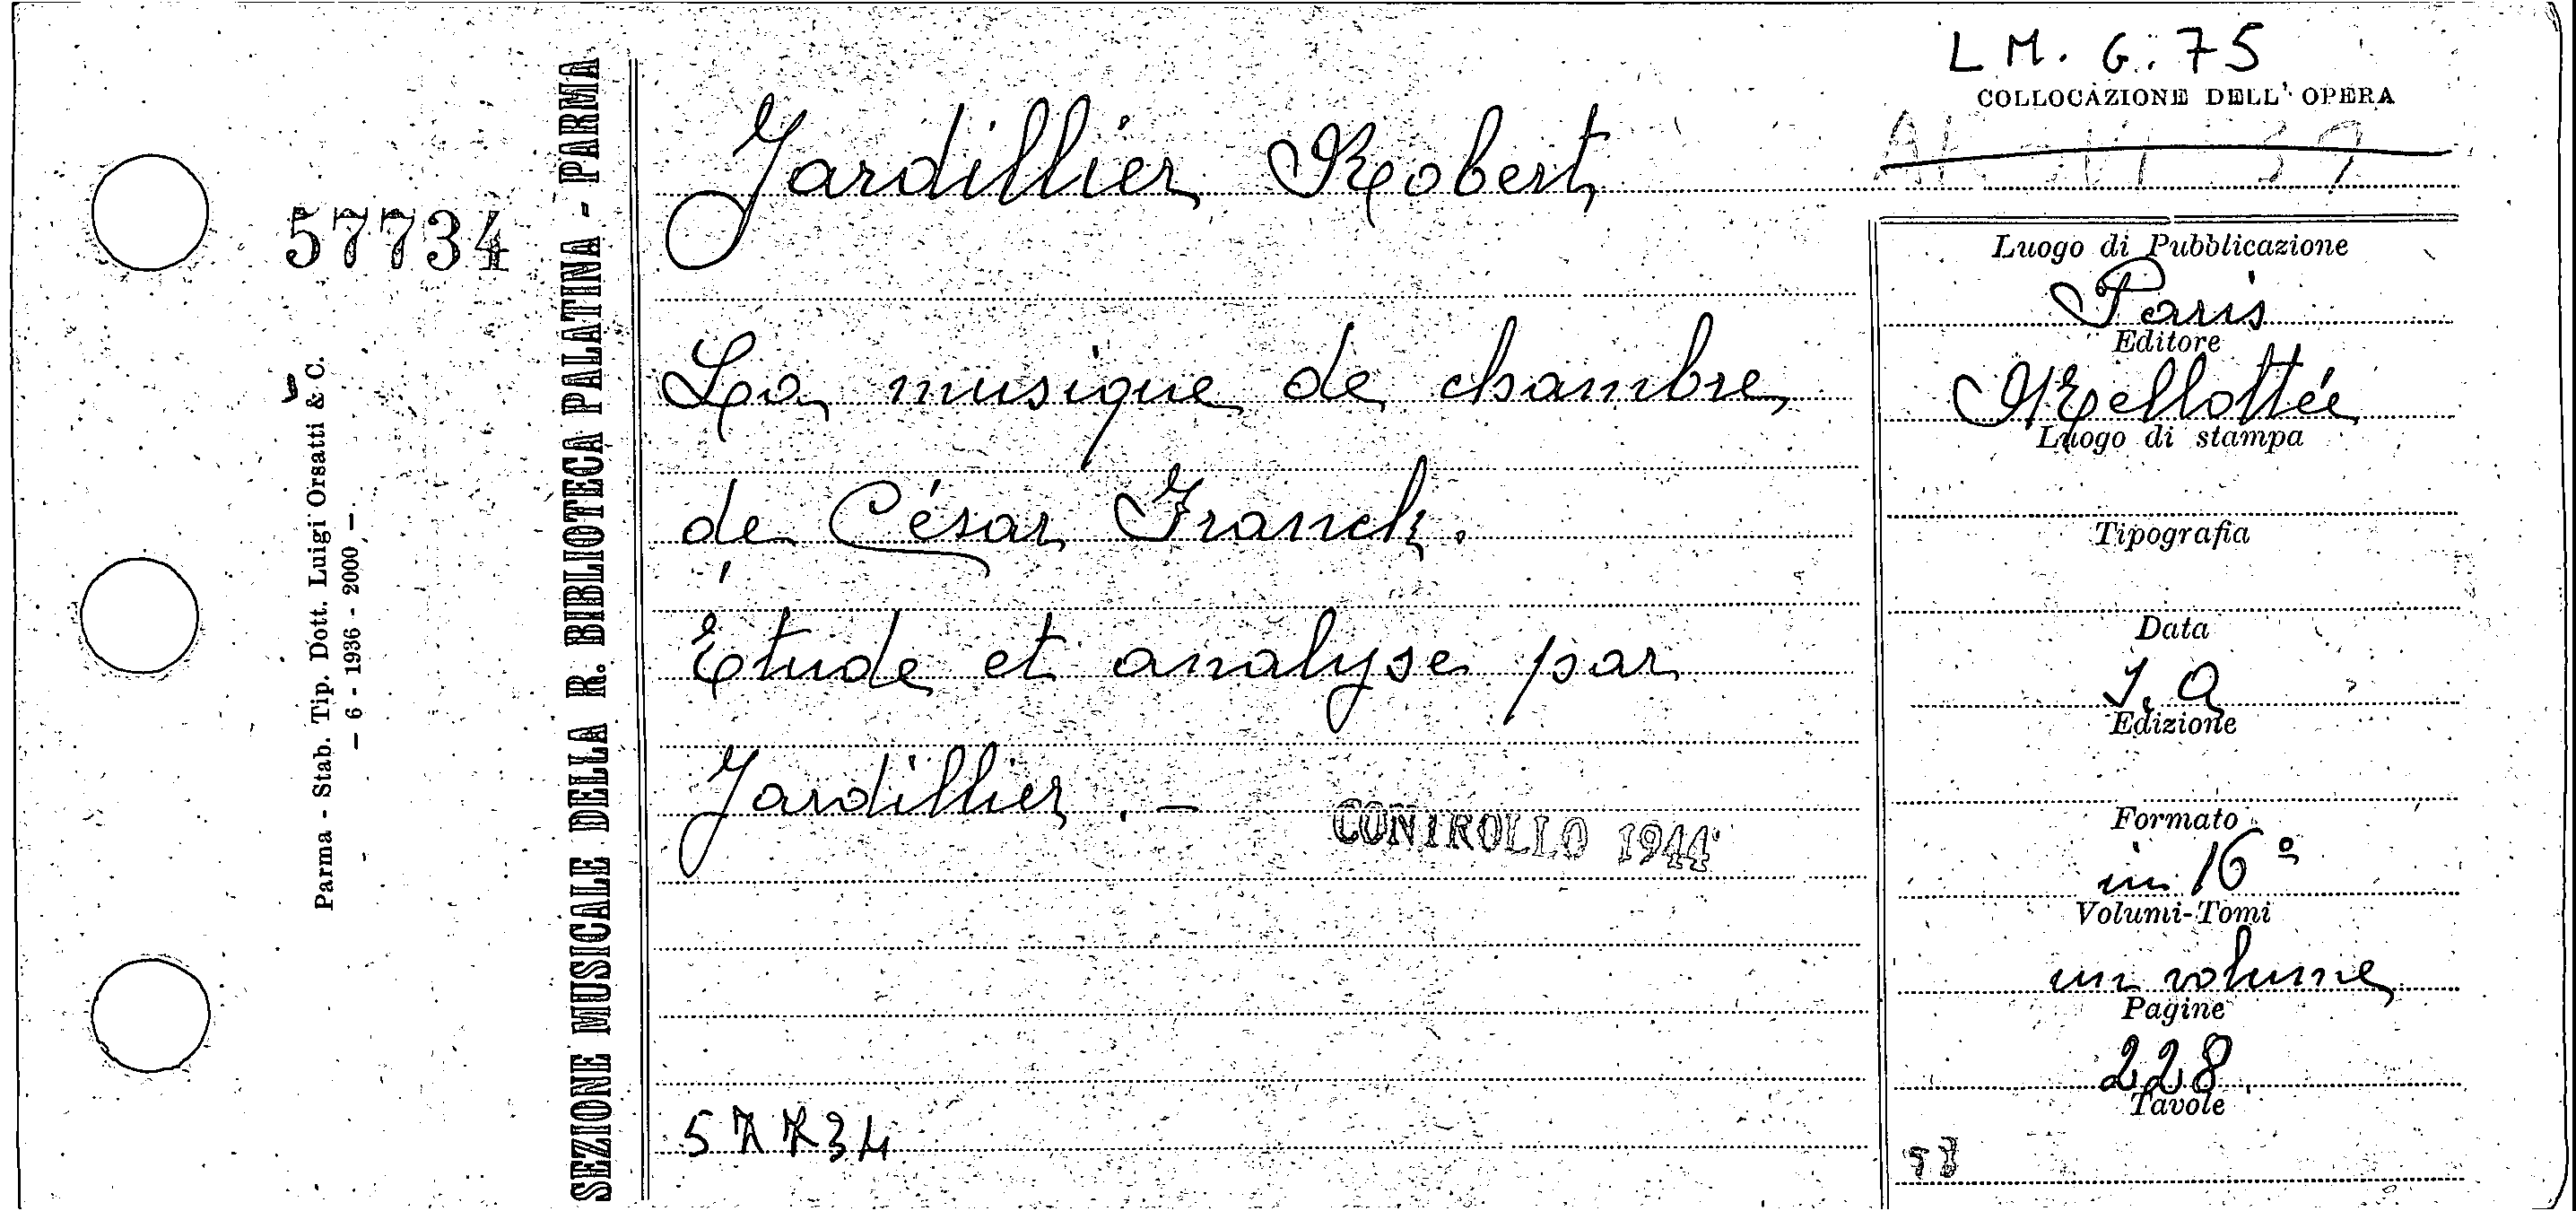 L M. G. 75
COLLOCAZIONE DELL' OPERA
57734
Parma - Stab. Tip. Dott. Luigi Orsatti & C.
— 6 - 1936 - 2000, —
SEZIONE MUSICALE DELLA R. BIBLIOTECA PALATINA - PARMA
Jardillier Robert
La musique de chambre
de César Franck.
Étude et analyse par
Jardillier . —
CONTROLLO 1944
57734
Luogo di Pubblicazione
Paris
Editore
Mellottée
Luogo di stampa
Tipografia
Data
S. a
Edizione
Formato
in 16º
Volumi-Tomi
un volume
Pagine
228
Tavole